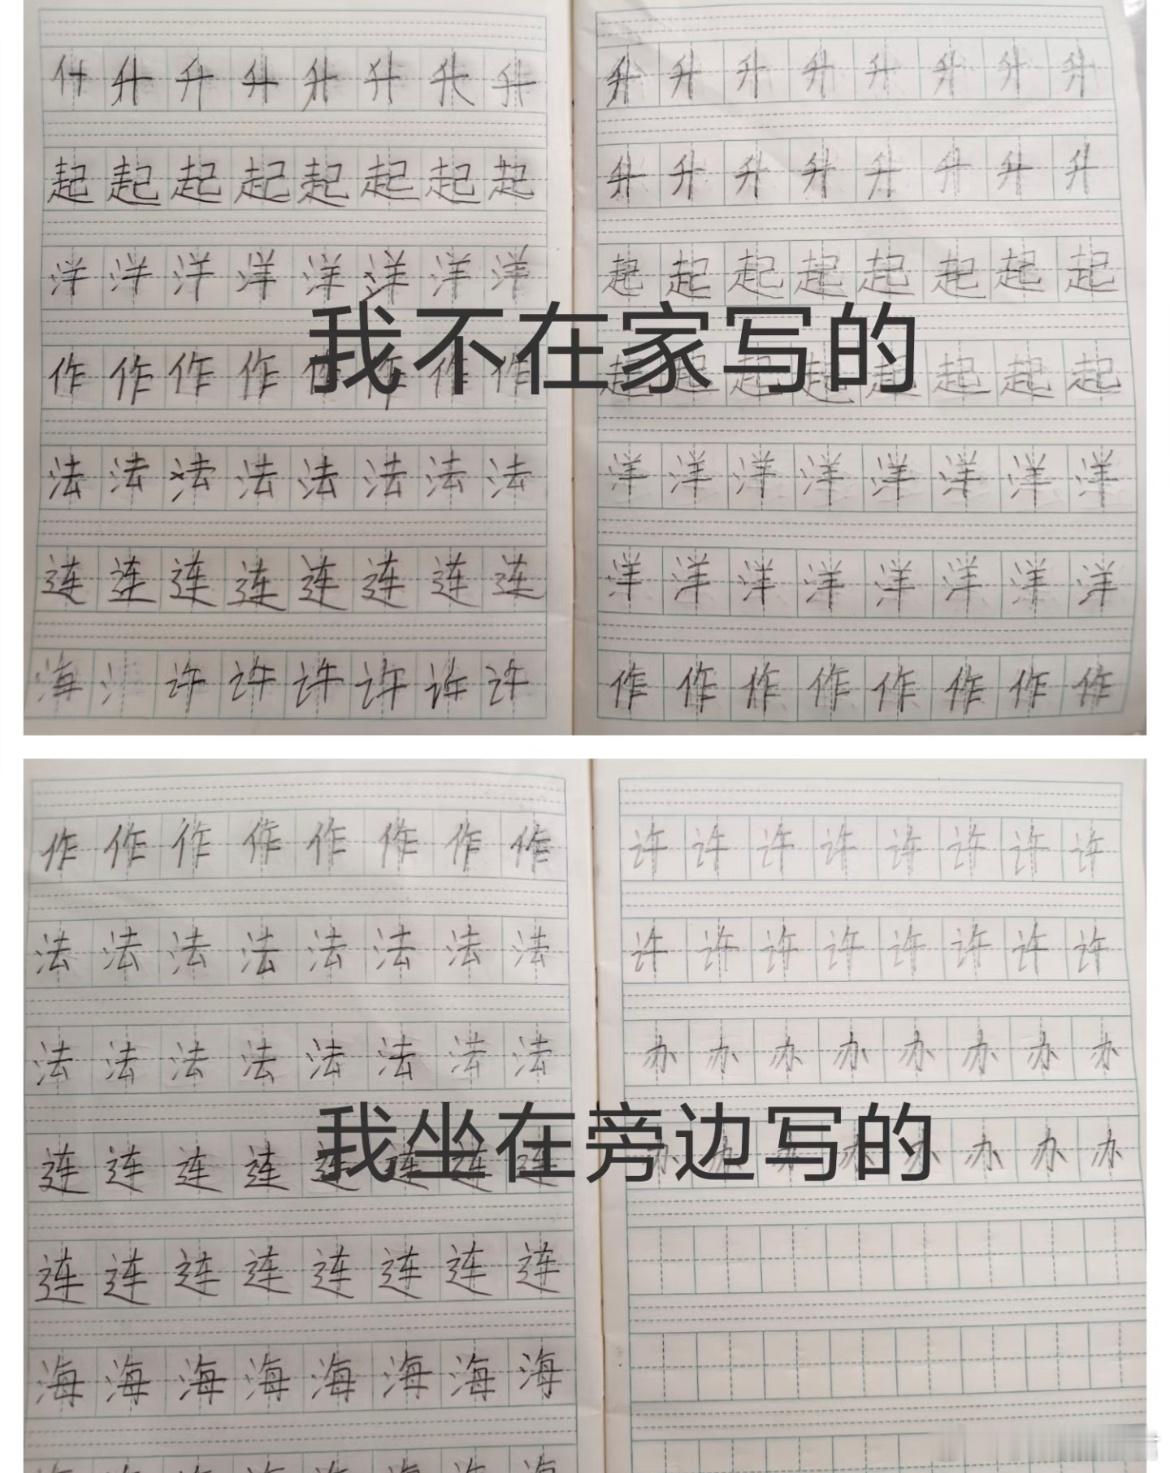 升升升升升升升升
起起起起起起起起
洋洋洋洋洋洋洋洋
作作作作作作作作
法法法法法法法法
连连连连连连连连
海许许许许许许
升升升升升升升升
升升升升升升升升
起起起起起起起起
起起起起起起起起
洋洋洋洋洋洋洋洋
洋洋洋洋洋洋洋洋
作作作作作作作作
我不在家写的
作作作作作作作作
法法法法法法法法
法法法法法法法法
连连连连连连连连
连连连连连连连连
海海海海海海海海
许许许许许许许许
许许许许许许许许
办办办办办办办办
办办办办办办办办
我坐在旁边写的